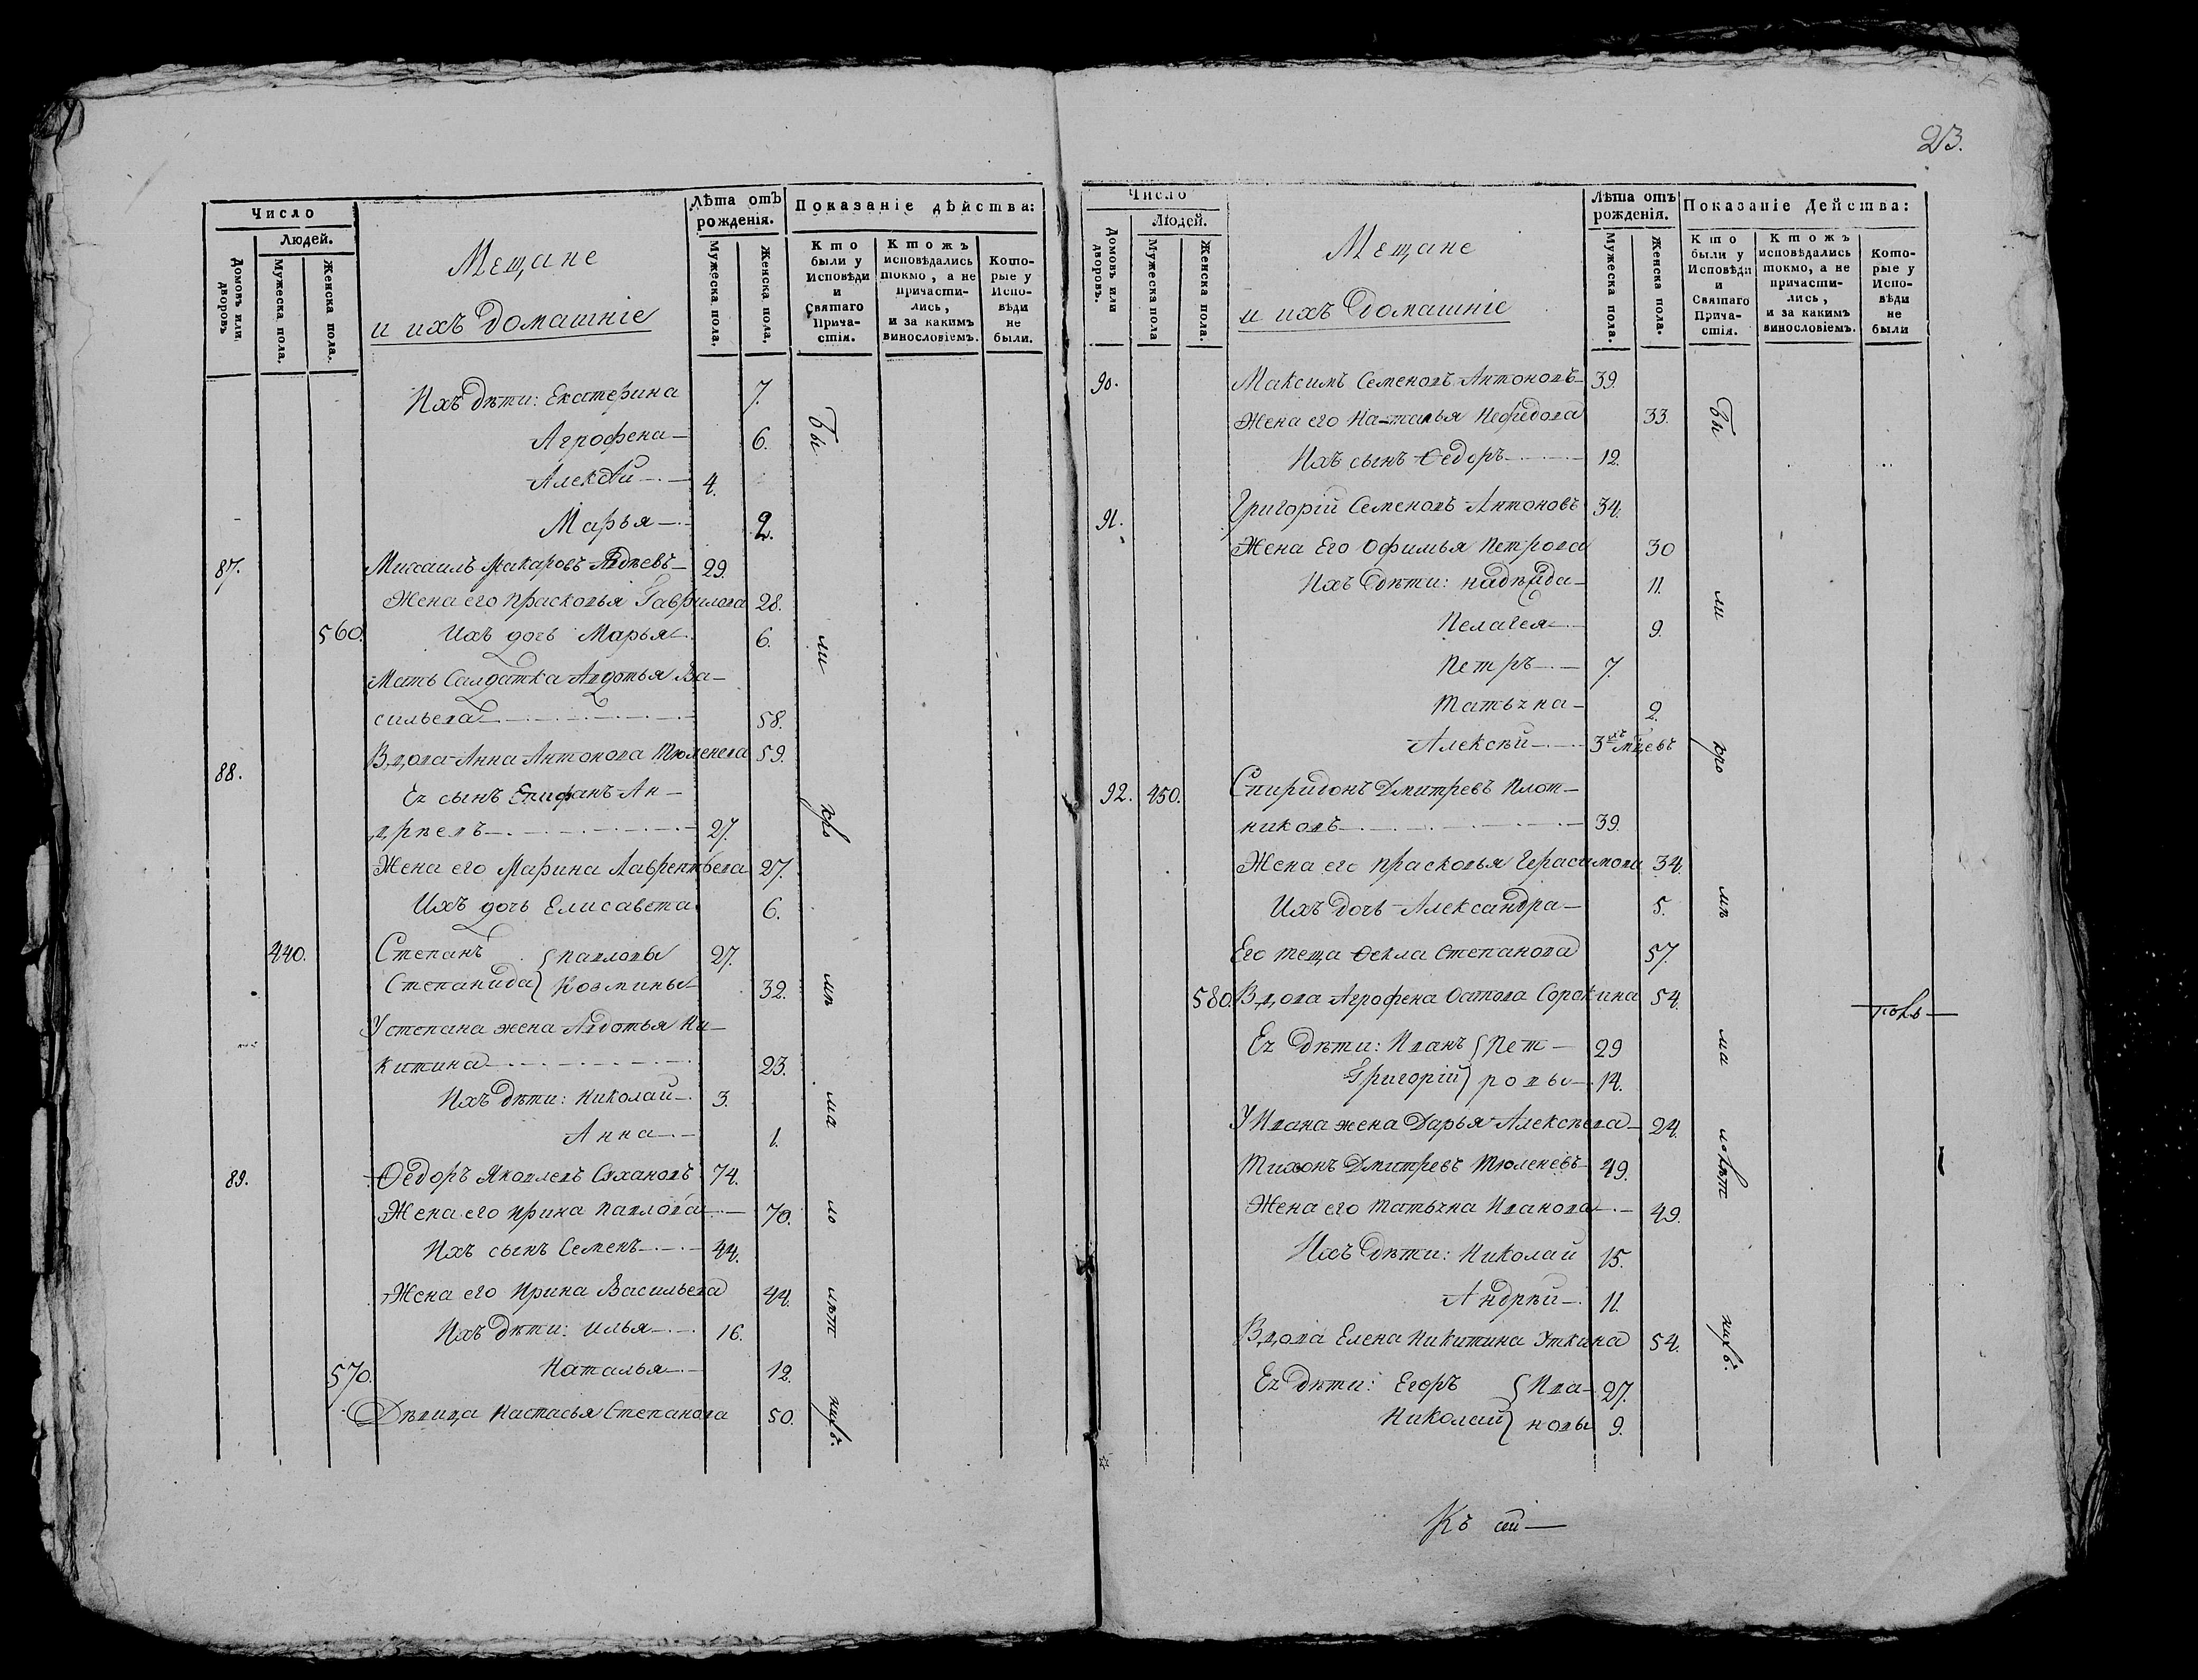 23.
Число
Людей.
Домовъ или дворовъ.
Мужеска пола.
Женска пола.
Мещане
и ихъ домашніе
Лѣта отъ рожденія.
Мужеска пола.
Женска пола.
Показаніе дѣйства:
Кто были у Исповѣди и Святаго Прича-стія.
Ктожъ исповѣдались токмо, а не причасти-лись, и за какимъ винословіемъ.
Кото-рые у Испо-вѣди не были.
Ихъ дѣти: Екатерина 7.
Агрофена 6.
Алексѣй 4.
Марья 2.
87. Михаилъ Макаровъ Авдѣевъ 29.
Жена его Прасковья Гаврилова 28.
560. Ихъ дочь Марья 6.
Мать Салдатка Авдотья Ва-
сильева 58.
88. Вдова Анна Антонова Тюленева 59.
Ея сынъ Епифанъ Ан-
дрѣевъ 27.
Жена его Марина Лаврентьева 27.
Ихъ дочь Елисавета 6.
440. Степанъ Павловы 27.
Степанида Козмины 32.
У степана жена Авдотья Ни-
китина 23.
Ихъ дѣти: Николай 3.
Анна 1.
89. Ѳедоръ Яковлевъ Сухановъ 74.
Жена его Ирина Павлова 70.
Ихъ сынъ Семенъ 44.
Жена его Ирина Васильева 44.
Ихъ дѣти: Илья 16.
570. Наталья 12.
Дѣвица Настасья Степанова 50.
Бы
ли
Число
Людей.
Домовъ или дворовъ.
Мужеска пола
Женска пола.
Мещане
и ихъ домашніе
Лѣта отъ рожденія.
Мужеска пола.
Женска пола.
Показаніе Действа:
Кто были у Исповѣди и Святаго Прича-стія.
Ктожъ исповѣдались токмо, а не причасти-лись, и за какимъ винословіемъ.
Кото-рые у Испо-вѣди не были
90. Максимъ Семеновъ Антоновъ 39.
Жена его Наталья Нефедова 33.
Ихъ сынъ Ѳедоръ 12.
91. Григорій Семеновъ Антоновъ 34.
Жена Его Офимья Петрова 30
Ихъ дѣти: Надѣжда 11.
Пелагея 9.
Петръ 7.
Татьяна 2.
Алексѣй 3хъ мцевъ
92. 450. Спиридонъ Дмитревъ Плот-
никовъ 39.
Жена его Прасковья Герасимова 34.
Ихъ дочь Александра 5.
Его теща Ѳекла Степанова 57.
580. Вдова Агрофена Осипова Сорокина 54.
Ея дѣти: Иванъ Пет- 29
Григорій ровы 14.
У Ивана жена Дарья Алексѣева 24.
Тихонъ Дмитревъ Тюленевъ 49.
Жена его Татьяна Иванова 49.
Ихъ дѣти: Николай 15.
Андрѣй 11.
Вдова Елена Никитина Уткина 54.
Ея дѣти: Егоръ Ива- 27.
Николай новы 9.
Бы
ли
Къ сей